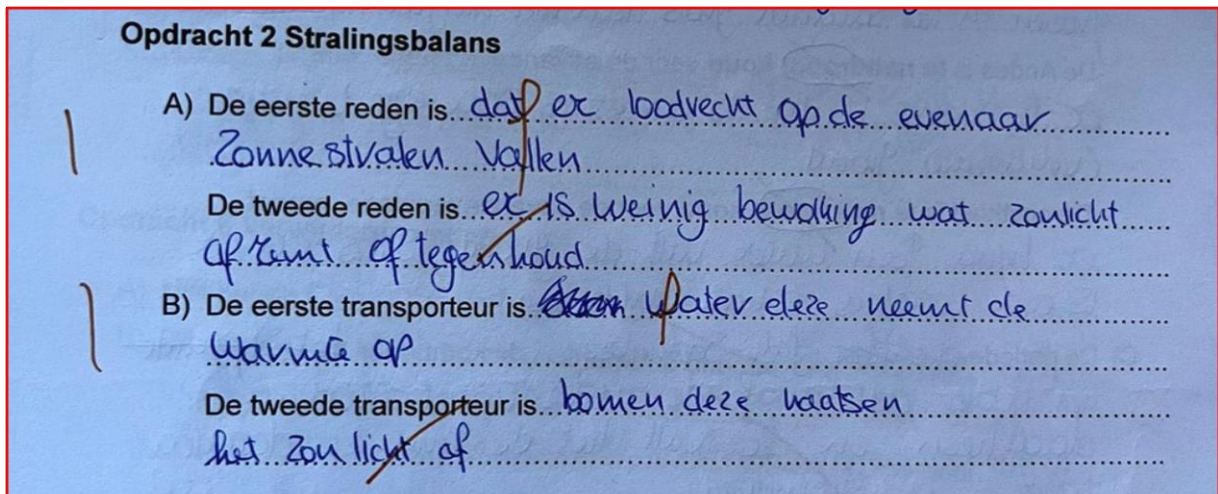 Opdracht 2 Stralingsbalans
A) De eerste reden is dat er loodrecht op de evenaar
Zonnestralen vallen
De tweede reden is er is weinig bewolking wat zonlicht
afremt of tegenhoud
B) De eerste transporteur is water deze neemt de
warmte op
De tweede transporteur is bomen deze kaatsen
het zonlicht af